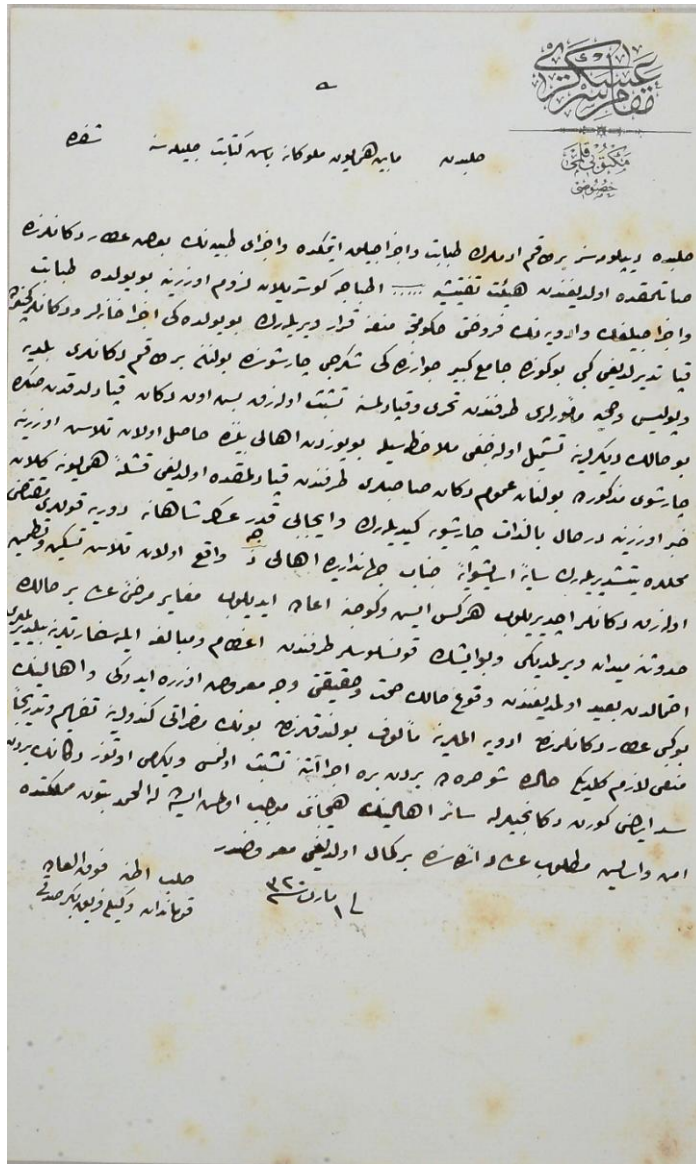 مقام سرعسكرى
مكتوبى قلمى
خصوصى
حلبدن مابين همايون ملوكانه باش كتابت جليله سنه شفره
حلبده ديپلومه سز بر طاقم ادملرك طبابت واجزاجيلق ايتمكده واجزاى طبيه نك بعض عطار دكانلرنده
صاتلمقده اولديغندن هيئت تفتيشيه اطباجه كوستريلان لزوم اوزرينه بويولده طبابت
واجزاجيلغك وادويه نك فروختى حكومتجه منعنه قرار ويريلرك بويولده كى اجزاخانه لر ودكانلر
قپاتديرلديغى كبى بوكون ده جامع كبير جوارنده كى شكرجى چارشوسنده بولنان بر طاقم دكانلرى بلديه
وپوليس وصحيه مأمورلرى طرفندن تحرى وقپادلمسنه تشبث اولنه رق بش اون دكان قپادلدقدن صكره
بو حالك ديكرلرينه تشميل اوله جغى ملاحظه سيله بويوزدن اهالى بيننده حاصل اولان تلاش اوزرينه
چارشوى مذكورده بولنان عموم دكان صاحبلرى طرفندن قپادلمقده اولديغى قشلهٔ همايونه كلان
خبر اوزرينه درحال بالذات چارشويه كيديله رك وايجابى قدر عساكر شاهانه دوريه قوللرى
محلنده يتشديريله رك سايهٔ اسايشوايهٔ جناب جهانداريده اهالى جه واقع اولان تلاش تسكين وتطمين
اولنه رق دكانلر اچديريلوب هركس ايش وكوجنه اعاده ايديلوب مغاير مرضئ عالى بر حالك
حدوثنه ميدان ويرلمديكى وبوايشك قونسلوسلر طرفندن اعظام ومبالغه ايله سفارتلرينه بيلديرلمسى
احتمالدن بعيد اولمديغندن وقوع حالك صحت وحقيقتى وجه معروض اوزره ايدوكى واهالينك
بوكبى عطار دكانلرنده ادويه المlرينه مألوف بولندقلرندن بونك مضراتى كندولرينه تفهيم وتدريجاً
منعى لازم كليركن حالك شو صورتده بردن بره اجراآتنه تشبث اولنمسى ويكرمى اوتوز دكانك بردن
سد ايدلديكنى كورن دكانجيلرله سائر اهالينك هيجاننى موجب اولمش ايسه ده لله الحمد بتون مملكتده
امن واسايش مطلوب عالى دائره سنده بركمال اولديغى معروضدر
١ مارت ٣٢٠
حلب اطنه فوق العاده
قوماندان وكيلى فريق بكر صدقى